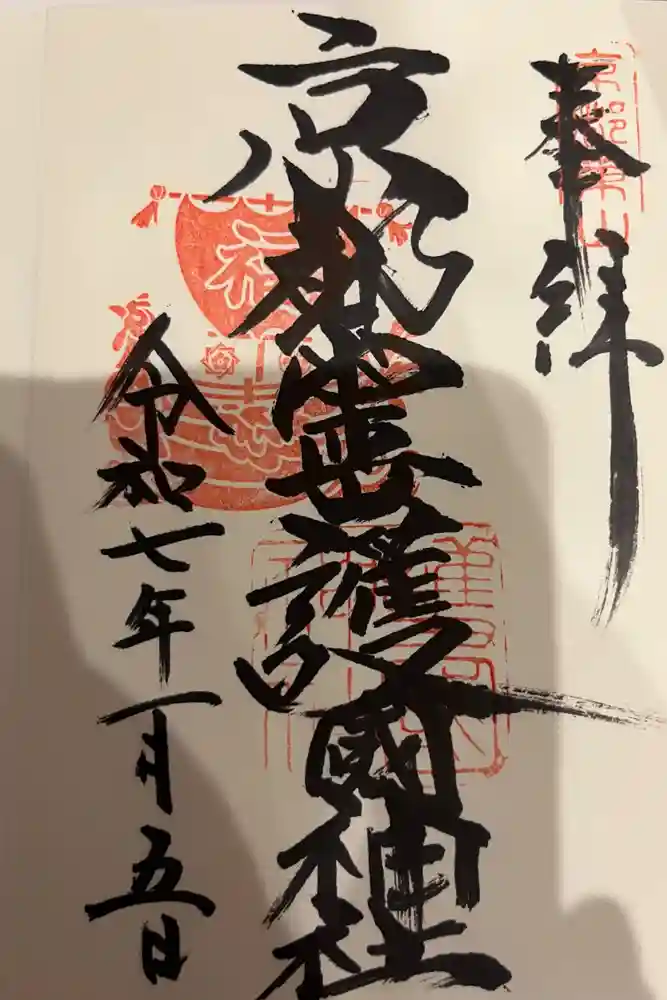 奉拝
京都東山
京都霊山護國神社
令和七年一月五日